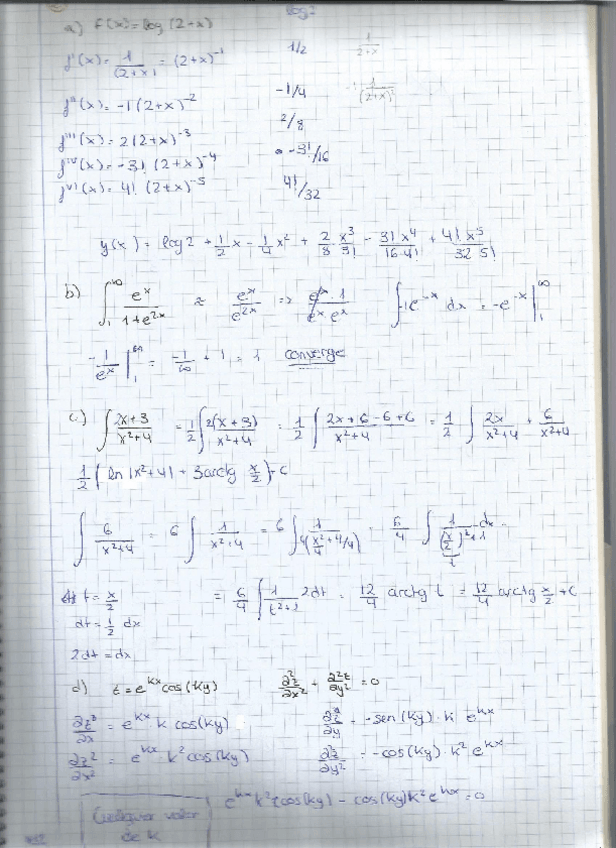 log 2
a) f(x) = log(2+x)
f'(x) = 1/(2+x) = (2+x)^-1    1/2    1/(2+x)
f''(x) = -1(2+x)^-2    -1/4    -1 1/(2+x)²
f'''(x) = 2(2+x)^-3    2/8
f^IV(x) = -3! (2+x)^-4    -3!/16
f^V)(x) = 4! (2+x)^-5    4!/32
y(x) = log 2 + 1/2 x - 1/4 x² + 2/8 x³/3! - 3! x⁴/16·4! + 4! x⁵/32 5!
b) ∫₁^∞ e^x/(1+e^2x) ≈ e^x/e^2x => 1/(e^x e^x) ∫ 1e^-x dx = -e^-x |₁^∞
-1/e^x |₁^∞ = -1/∞ + 1 = 1 converge
c.) ∫ (2x+3)/(x²+4) = 1/2 ∫ 2(x+3)/(x²+4) = 1/2 ∫ (2x+6-6+6)/(x²+4) = 1/2 ∫ 2x/(x²+4) + 6/(x²+4)
1/2 ( ln|x²+4| + 3arctg x/2 ) + C
∫ 6/(x²+4) = 6 ∫ 1/(x²+4) = 6 ∫ 1/(4(x²/4 + 4/4)) = 6/4 ∫ 1/((x/2)²+1) dx =
t = x/2    = 6/4 ∫ 1/(t²+1) 2dt = 12/4 arctg t = 12/4 arctg x/2 + C
dt = 1/2 dx
2dt = dx
d) z = e^kx cos(ky)    ∂²z/∂x² + ∂²z/∂y² = 0
∂z/∂x = e^kx k cos(ky)    ∂z/∂y = -sen(ky) · k e^kx
∂z²/∂x² = e^kx · k² cos(ky)    ∂z/∂y² = -cos(ky) k² e^kx
e^kx k² cos(ky) - cos(ky) k² e^kx = 0
Cualquier valor
de k